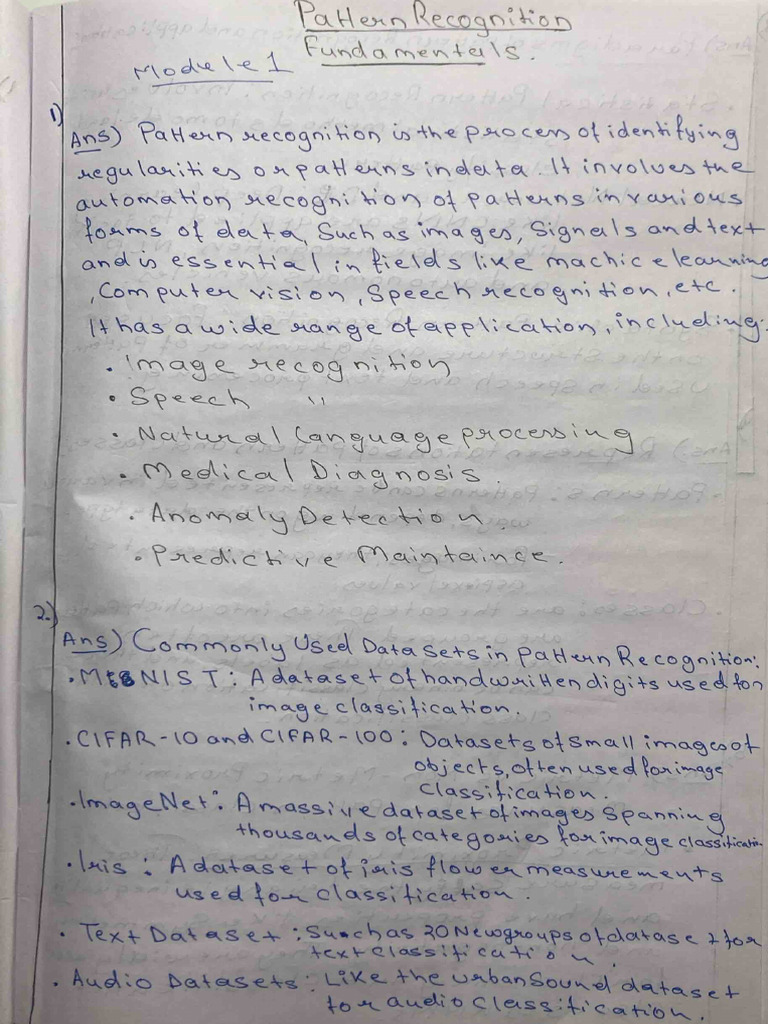 Pattern Recognition
Fundamentals.
Module 1
1)
Ans) Pattern recognition is the process of identifying
regularities or patterns in data. It involves the
automation recognition of patterns in various
forms of data, Such as images, Signals and text
and is essential in fields like machice learning
, Computer vision, Speech recognition, etc.
It has a wide range of application, including:
• Image recognition
• Speech "
• Natural Language processing
• Medical Diagnosis.
• Anomaly Detection.
• Predictive Maintaince.
2.)
Ans) Commonly Used Data Sets in Pattern Recognition:
• MNIST: A dataset of handwritten digits used for
image classification.
• CIFAR-10 and CIFAR-100: Datasets of small images of
objects, often used for image
classification.
• ImageNet: A massive dataset of images spanning
thousands of categories for image classification
• Iris: A dataset of iris flower measurements
used for classification.
• Text Dataset: Such as 20 Newgroups of dataset for
text classification.
• Audio Datasets: Like the urban Sound dataset
for audio classification.